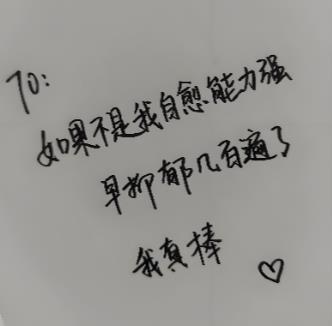 To:
如果不是我自愈能力强
早抑郁几百遍了
我真棒